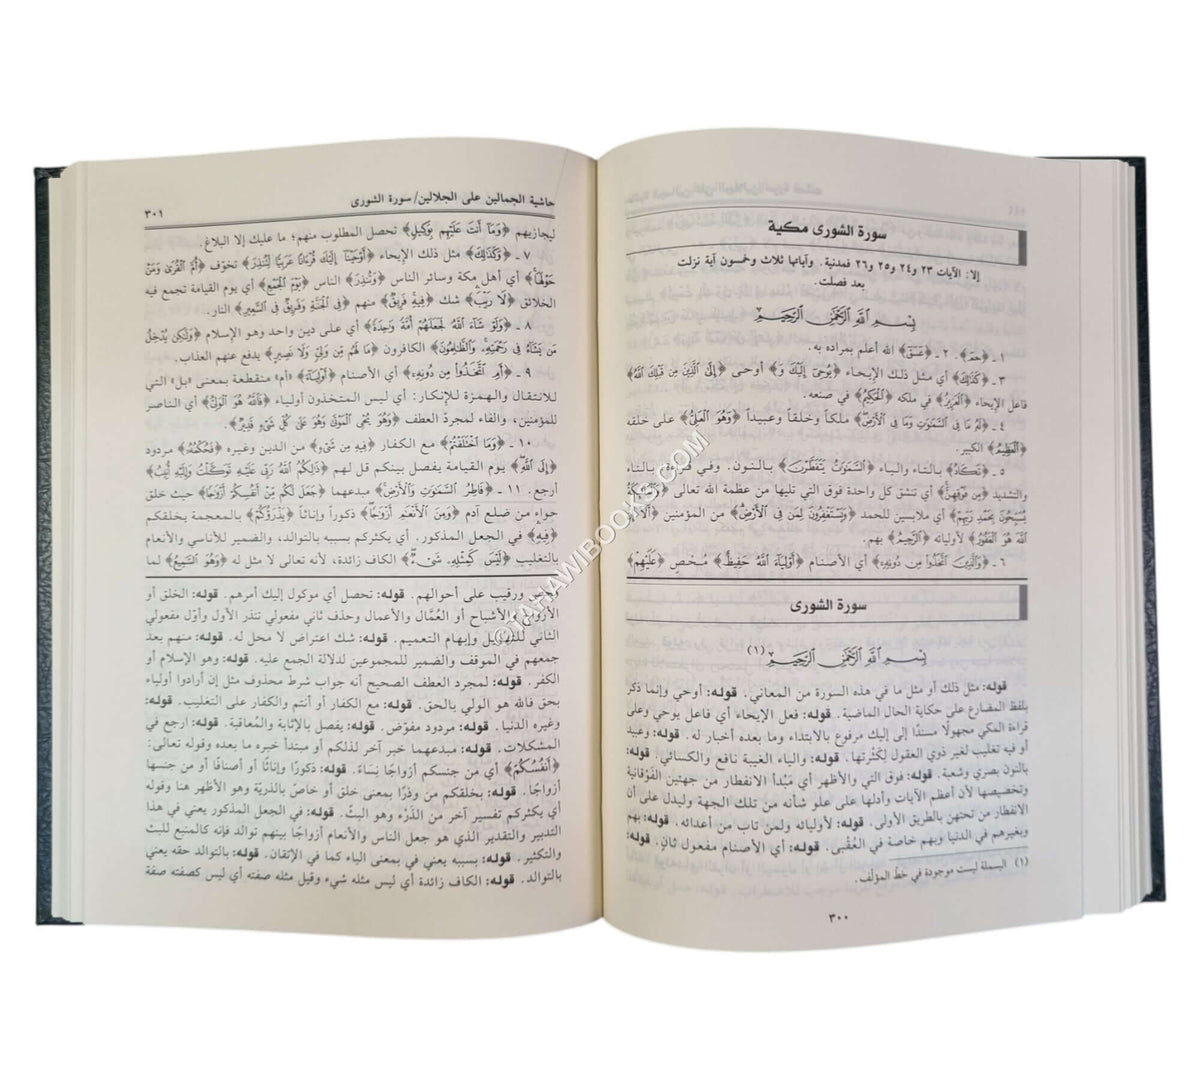 سورة الشورى مكية
إلا: الآيات ٢٣ و٢٤ و٢٥ و٢٦ فمدنية. وآياتها ثلاث وخمسون آية نزلت
بعد فصلت.
بِسْمِ ٱللَّهِ ٱلرَّحْمَٰنِ ٱلرَّحِيمِ
١ ـ ﴿حمٓ﴾ . ٢ ـ ﴿عٓسٓقٓ﴾ الله أعلم بمراده به.
٣ ـ ﴿كَذَٰلِكَ﴾ أي مثل ذلك الإيحاء ﴿يُوحِىٓ إِلَيْكَ وَ﴾ أوحى ﴿إِلَى ٱلَّذِينَ مِن قَبْلِكَ ٱللَّهُ﴾
فاعل الإيحاء ﴿ٱلْعَزِيزُ﴾ في ملكه ﴿ٱلْحَكِيمُ﴾ في صنعه.
٤ ـ ﴿لَهُۥ مَا فِى ٱلسَّمَٰوَٰتِ وَمَا فِى ٱلْأَرْضِ﴾ ملكاً وخلقاً وعبيداً ﴿وَهُوَ ٱلْعَلِىُّ﴾ على خلقه
﴿ٱلْعَظِيمُ﴾ الكبير.
٥ ـ ﴿تَكَادُ﴾ بالتاء والياء ﴿ٱلسَّمَٰوَٰتُ يَتَفَطَّرْنَ﴾ بالنون. وفي قراءة بالتاء
والتشديد ﴿مِن فَوْقِهِنَّ﴾ أي تنشق كل واحدة فوق التي تليها من عظمة الله تعالى ﴿وَٱلْمَلَٰٓئِكَةُ
يُسَبِّحُونَ بِحَمْدِ رَبِّهِمْ﴾ أي ملابسين للحمد ﴿وَيَسْتَغْفِرُونَ لِمَن فِى ٱلْأَرْضِ﴾ من المؤمنين ﴿أَلَآ إِنَّ
ٱللَّهَ هُوَ ٱلْغَفُورُ﴾ لأوليائه ﴿ٱلرَّحِيمُ﴾ بهم.
٦ ـ ﴿وَٱلَّذِينَ ٱتَّخَذُوا۟ مِن دُونِهِۦٓ﴾ أي الأصنام ﴿أَوْلِيَآءَ ٱللَّهُ حَفِيظٌ﴾ مُحْصٍ ﴿عَلَيْهِمْ﴾
سورة الشورى
بِسْمِ ٱللَّهِ ٱلرَّحْمَٰنِ ٱلرَّحِيمِ (١)
قوله: مثل ذلك أو مثل ما في هذه السورة من المعاني. قوله: أوحي وإنما ذكر
بلفظ المضارع على حكاية الحال الماضية. قوله: فعل الإيحاء أي فاعل يوحي وعلى
قراءة المكي مجهولًا مسندًا إلى إليك مرفوع بالابتداء وما بعده أخبار له. قوله: وعبيد
أو فيه تغليب لغير ذوي العقول لكَثْرتها. قوله: والياء الغيبة نافع والكسائي. قوله:
بالنون بصري وشعبة. قوله: فوق التي والأظهر أي مَبْدأ الانفطار من جهتين الفَوْقانية
وتخصيصها لأن أعظم الآيات وأدلها على علو شأنه من تلك الجهة وليدل على أن
الانفطار من تحتهن بالطريق الأولى. قوله: لأوليائه ولمن تاب من أعدائه. قوله: بهم
وبغيرهم في الدنيا وبهم خاصة في العُقْبى. قوله: أي الأصنام مفعول ثانٍ. قوله:
(١) البسملة ليست موجودة في خطّ المؤلّف.
٣٠٠
حاشية الجمالين على الجلالين/ سورة الشورى
٣٠١
ليجازيهم ﴿وَمَآ أَنتَ عَلَيْهِم بِوَكِيلٍ﴾ تحصل المطلوب منهم؛ ما عليك إلا البلاغ.
٧ ـ ﴿وَكَذَٰلِكَ﴾ مثل ذلك الإيحاء ﴿أَوْحَيْنَآ إِلَيْكَ قُرْءَانًا عَرَبِيًّا لِّتُنذِرَ﴾ تخوّف ﴿أُمَّ ٱلْقُرَىٰ وَمَنْ
حَوْلَهَا﴾ أي أهل مكة وسائر الناس ﴿وَتُنذِرَ﴾ الناس ﴿يَوْمَ ٱلْجَمْعِ﴾ أي يوم القيامة تجمع فيه
الخلائق ﴿لَا رَيْبَ﴾ شك ﴿فِيهِ فَرِيقٌ﴾ منهم ﴿فِى ٱلْجَنَّةِ وَفَرِيقٌ فِى ٱلسَّعِيرِ﴾ النار.
٨ ـ ﴿وَلَوْ شَآءَ ٱللَّهُ لَجَعَلَهُمْ أُمَّةً وَٰحِدَةً﴾ أي على دين واحد وهو الإسلام ﴿وَلَٰكِن يُدْخِلُ
مَن يَشَآءُ فِى رَحْمَتِهِۦ وَٱلظَّٰلِمُونَ﴾ الكافرون ﴿مَا لَهُم مِّن وَلِىٍّ وَلَا نَصِيرٍ﴾ يدفع عنهم العذاب.
٩ ـ ﴿أَمِ ٱتَّخَذُوا۟ مِن دُونِهِۦٓ﴾ أي الأصنام ﴿أَوْلِيَآءَ﴾ «أم» منقطعة بمعنى «بل» التي
للانتقال والهمزة للإنكار: أي ليس المتخذون أولياء ﴿فَٱللَّهُ هُوَ ٱلْوَلِىُّ﴾ أي الناصر
للمؤمنين، والفاء لمجرد العطف ﴿وَهُوَ يُحْىِ ٱلْمَوْتَىٰ وَهُوَ عَلَىٰ كُلِّ شَىْءٍ قَدِيرٌ﴾.
١٠ ـ ﴿وَمَا ٱخْتَلَفْتُمْ﴾ مع الكفار ﴿فِيهِ مِن شَىْءٍ﴾ من الدين وغيره ﴿فَحُكْمُهُۥٓ﴾ مردود
﴿إِلَى ٱللَّهِ﴾ يوم القيامة يفصل بينكم قل لهم ﴿ذَٰلِكُمُ ٱللَّهُ رَبِّى عَلَيْهِ تَوَكَّلْتُ وَإِلَيْهِ أُنِيبُ﴾
أرجع. ١١ ـ ﴿فَاطِرُ ٱلسَّمَٰوَٰتِ وَٱلْأَرْضِ﴾ مبدعهما ﴿جَعَلَ لَكُم مِّنْ أَنفُسِكُمْ أَزْوَٰجًا﴾ حيث خلق
حواء من ضلع آدم ﴿وَمِنَ ٱلْأَنْعَٰمِ أَزْوَٰجًا﴾ ذكوراً وإناثاً ﴿يَذْرَؤُكُمْ﴾ بالمعجمة يخلقكم
﴿فِيهِ﴾ في الجعل المذكور. أي يكثركم بسببه بالتوالد، والضمير للأناسي والأنعام
بالتغليب ﴿لَيْسَ كَمِثْلِهِۦ شَىْءٌ﴾ الكاف زائدة، لأنه تعالى لا مثل له ﴿وَهُوَ ٱلسَّمِيعُ﴾ لما
ورقيب على أحوالهم. قوله: تحصل أي موكول إليك أمرهم. قوله: الخلق أو
الأزواج والأشباح أو العُمَّال والأعمال وحذف ثاني مفعولي تنذر الأول وأوّل مفعولي
الثاني للتهويل وإيهام التعميم. قوله: شك اعتراض لا محل له. قوله: منهم بعد
جمعهم في الموقف والضمير للمجموعين لدلالة الجمع عليه. قوله: وهو الإسلام أو
الكفر. قوله: لمجرد العطف الصحيح أنه جواب شرط محذوف مثل إن أرادوا أولياء
بحق فالله هو الولي بالحق. قوله: مع الكفار أو أنتم والكفار على التغليب. قوله:
وغيره الدنيا. قوله: مردود مفوّض. قوله: يفصل بالإثابة والمُعاقبة. قوله: ارجع في
المشكلات. قوله: مبدعهما خبر آخر لذلكم أو مبتدأ خبره ما بعده وقوله تعالى:
﴿أَنفُسِكُمْ﴾ أي من جنسكم أزواجًا يَسَاءً. قوله: ذكورًا وإناثًا أو أصنافًا أو من جنسها
أزواجًا. قوله: بخلقكم من وذَرًا بمعنى خلق أو خاصّ بالذريّة وهو الأظهر هنا وقوله
أي يكثركم تفسير آخر من الذَرْء وهو البثّ. قوله: في الجعل المذكور يعني في هذا
التدبير والتقدير الذي هو جعل الناس والأنعام أزواجًا بينهم توالد فإنه كالمنبع للبث
والتكثير. قوله: بسببه يعني في بمعنى الباء كما في الإتقان. قوله: بالتوالد حقه يعني
بالتوالد. قوله: الكاف زائدة أي ليس مثله شيء وقيل مثله صفته أي ليس كصفته صفة
TAHAWIBOOKS.COM